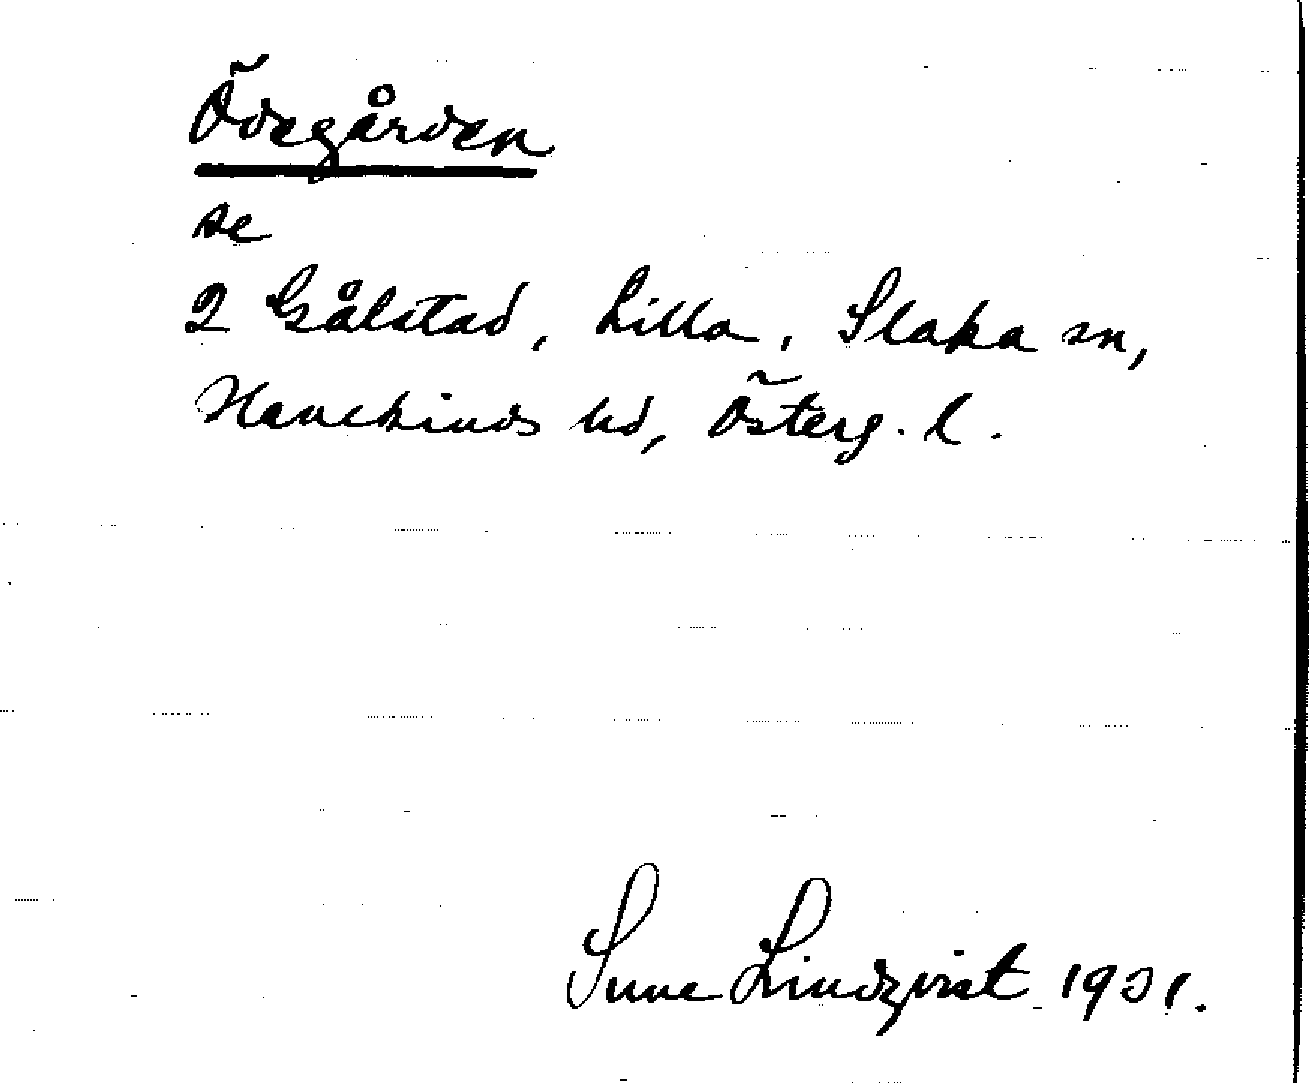 Ödegården
se
2 Gålstad, Lilla, Slaka sn,
Hanekinds hd, Österg. l.
Sune Lindqvist 1931.